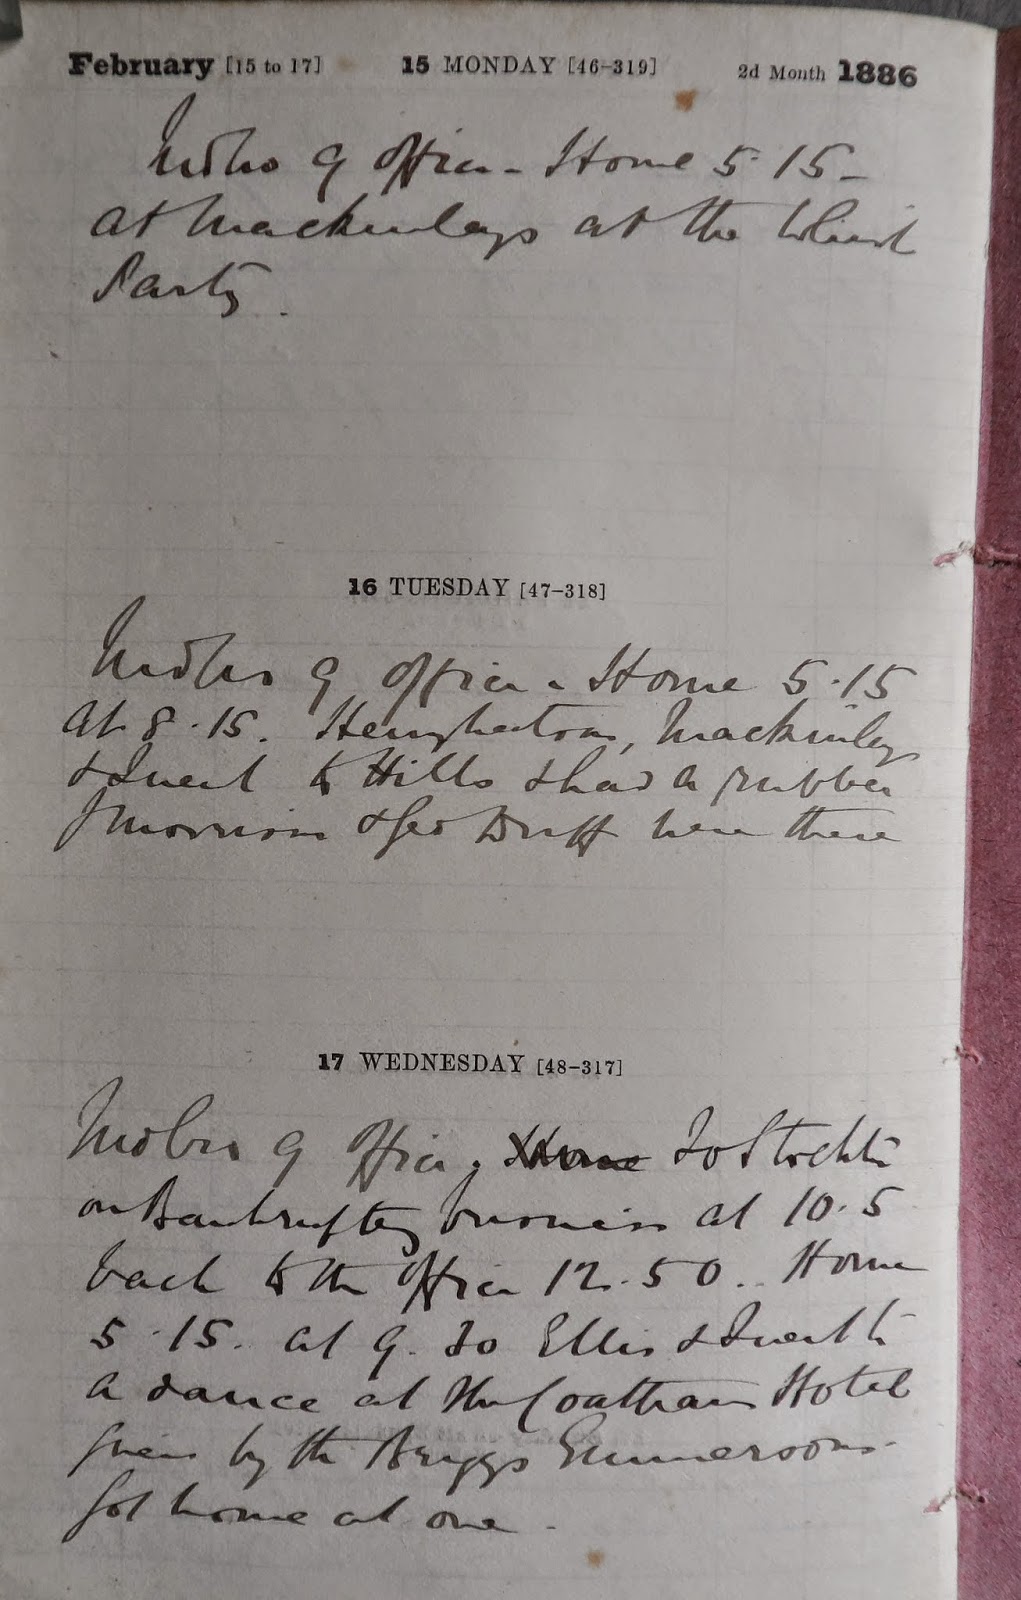 February [15 to 17] 15 MONDAY [46-319] 2d Month 1886
9 Office - Home 5.15 -
at Mackinlays at the Whist
Party.
16 TUESDAY [47-318]
9 Office - Home 5.15
At 8.15. Heughnatson, Mackinlay
& I went to Hills & had a rubber
J Morrison & Geo Duff were there
17 WEDNESDAY [48-317]
9 Office. Home To Stockton
on Bankruptcy business at 10.5
back to the Office 12.50. Home
5.15. at 9.30 Ellis & I went to
a dance at the Coatham Hotel
given by the Briggs Emmersons.
Got home at one.